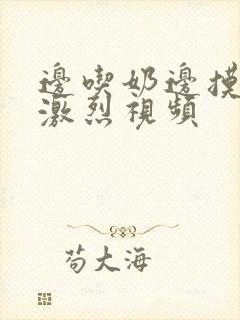 邊喫奶邊摸
激烈視頻
苟大海